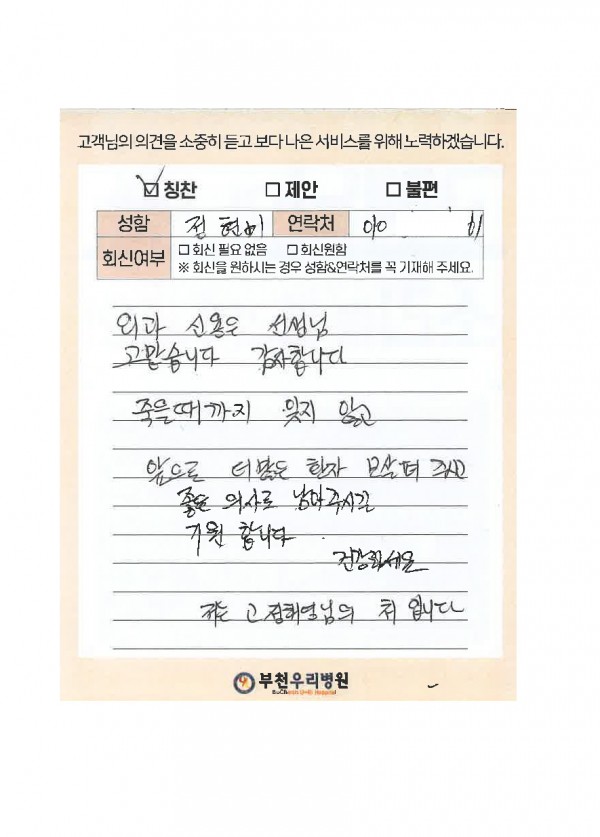 고객님의 의견을 소중히 듣고 보다 나은 서비스를 위해 노력하겠습니다.
☑ 칭찬 □ 제안 □ 불편
성함 정현비 연락처 010
회신여부 □ 회신 필요 없음 □ 회신원함
※ 회신을 원하시는 경우 성함&연락처를 꼭 기재해 주세요.
외과 신용은 선생님
고맙습니다 감사합니다
죽을때까지 잊지 않고
앞으로 더 많은 환자 보살펴 주시고
좋은 의사로 남아주시길
기원 합니다
건강하세요
저는 고 정해영님의 처 입니다
부천우리병원
BuCheon Urili Hospital